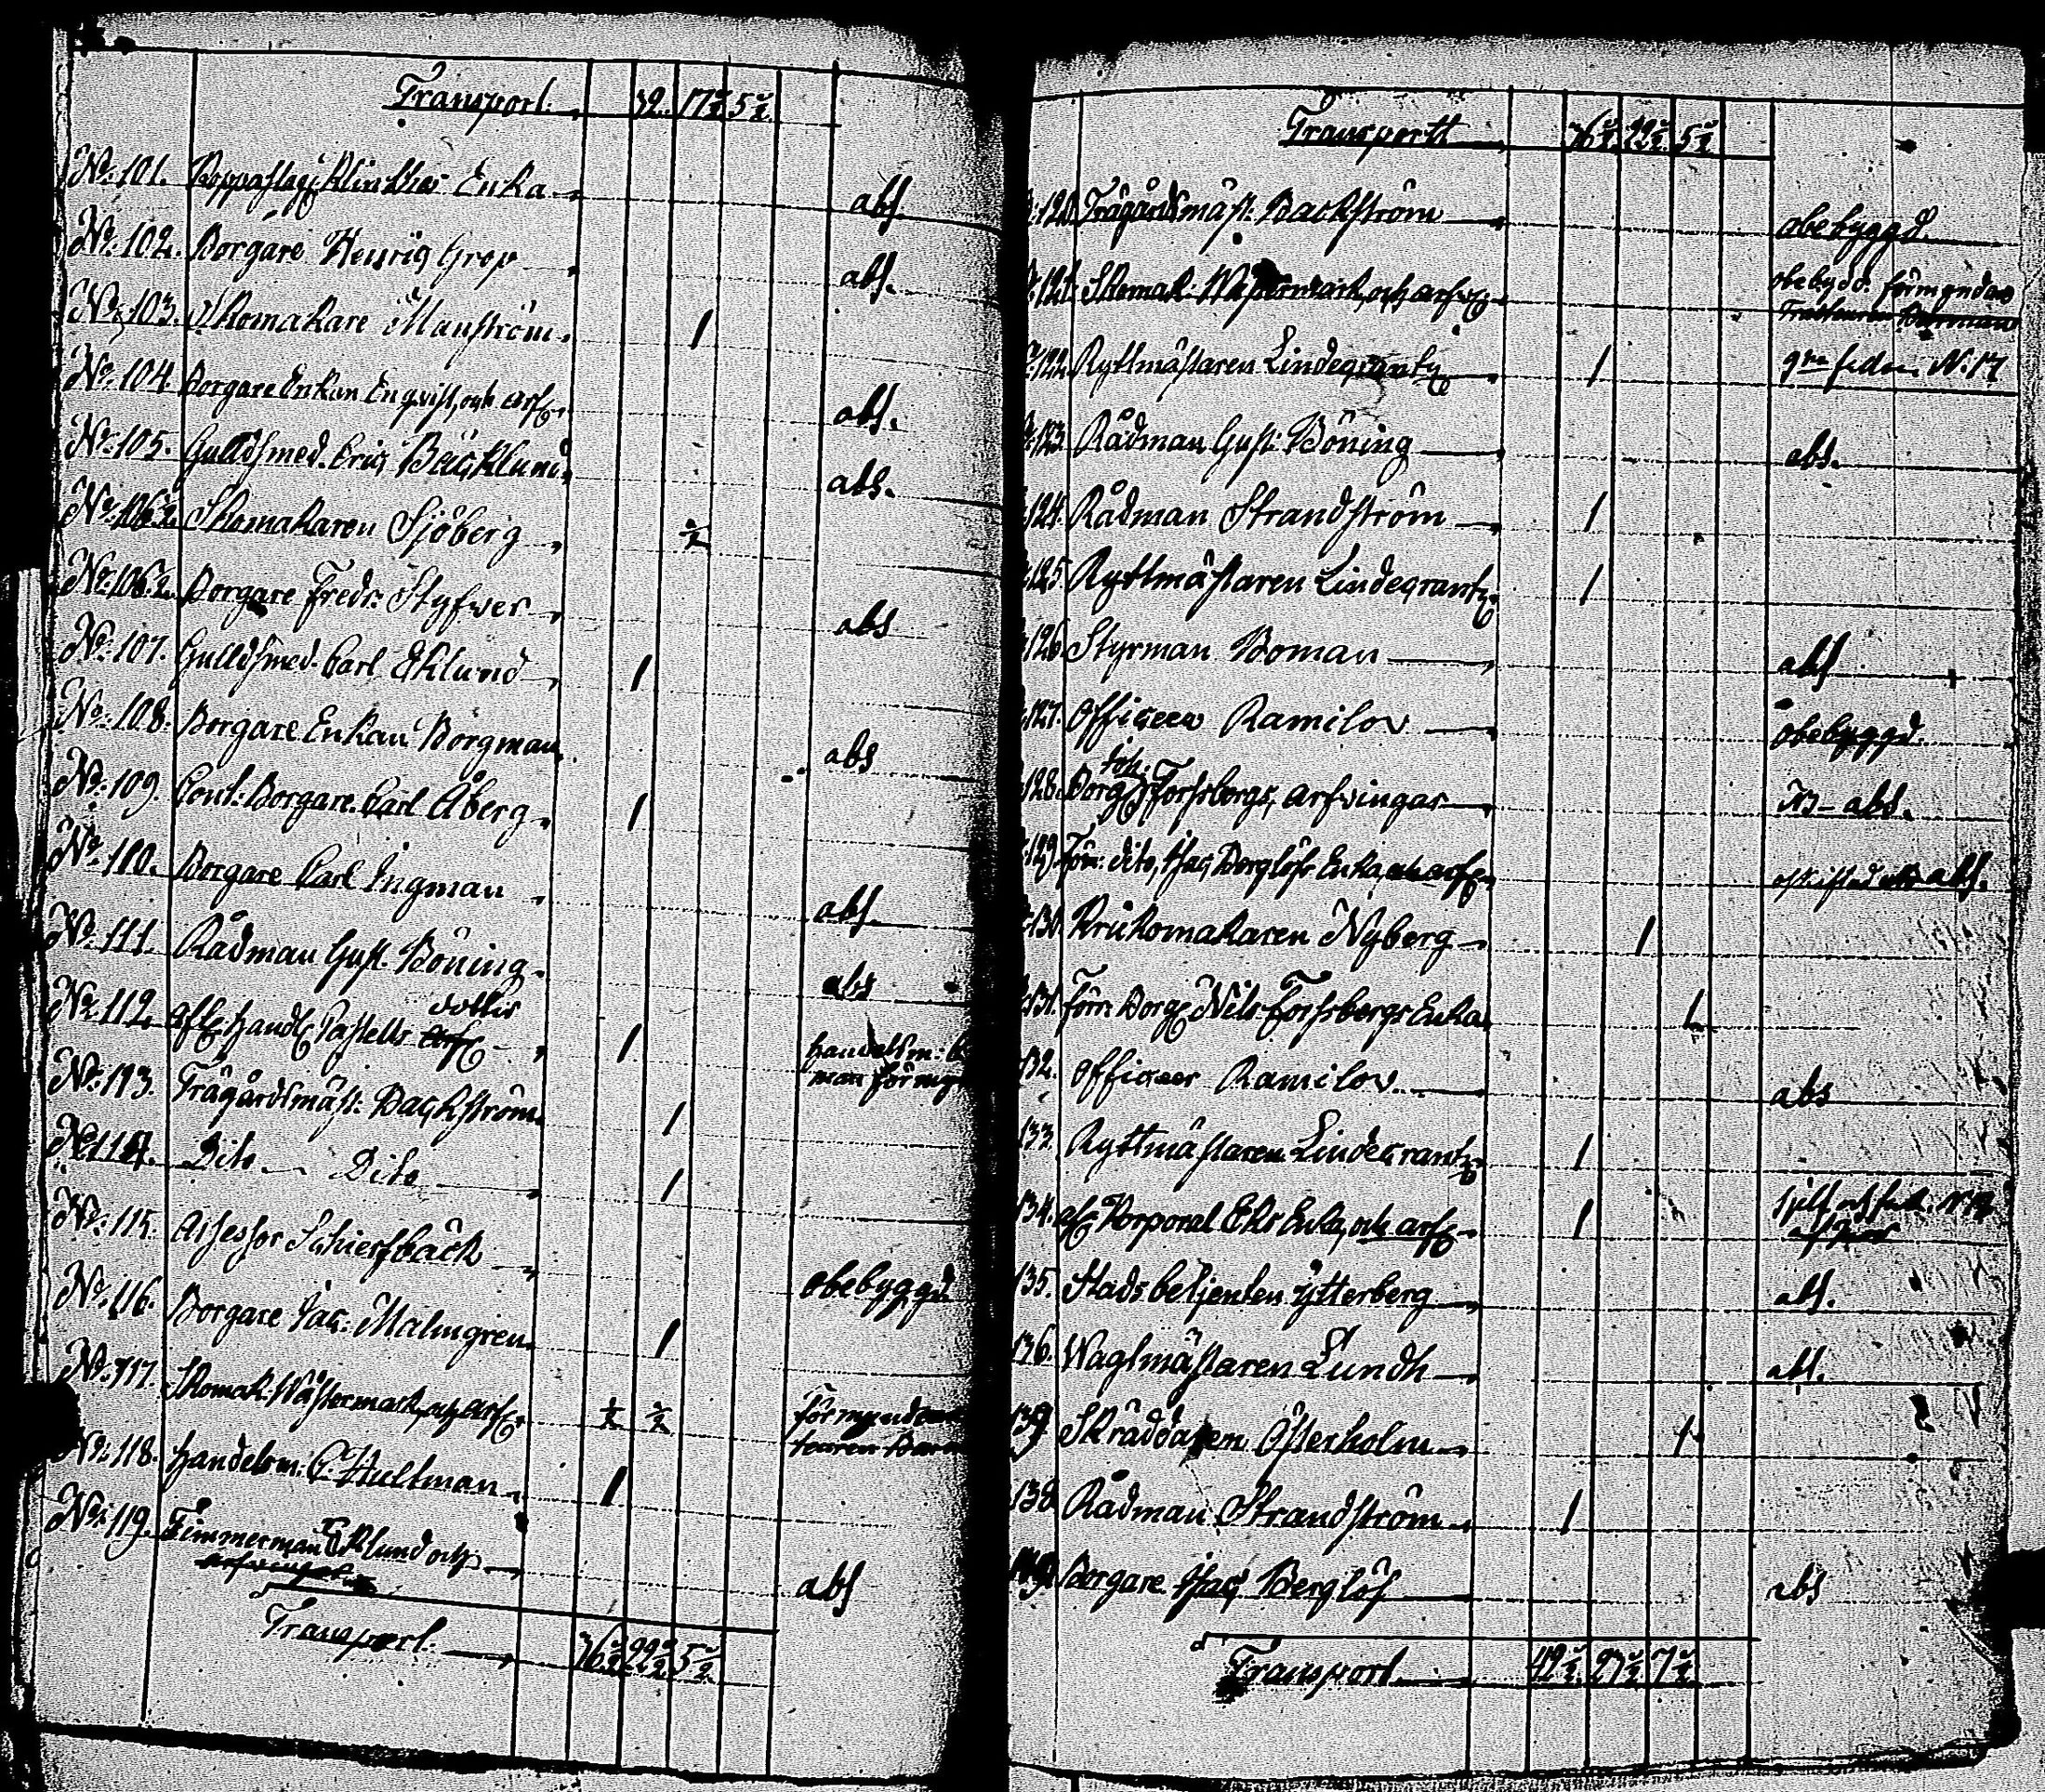 Transport. 32. 17½ 5½
No: 101. Reppslag: Klinkströms Enka abs.
No: 102. Borgare Henric Grop abs.
No: 103. Skomakare Manström 1
No: 104 Borgare Enkan Enqvist, och arf: abs.
No: 105. Gulldsmed. Eric Bäcklund abs.
No: 106½ Skomakaren Sjöberg ½
No: 106.½ Borgare Fredr: Styfver abs
No: 107. Gulldsmed. Carl Eklund 1
No: 108. Borgare Enkan Borgman abs
No: 109. Cont: Borgare. Carl Åberg 1
No: 110. Borgare Carl Ingman abs.
No: 111. Rådman Gust. Böning abs
dotter
No: 112. afl: handl: Pastells arf: 1 handelsm:
man förmyn
No: 113. Trägårdsmäst: Backström 1
No: 114. Dito Dito 1
No: 115. Assessor Schierfbäck obebyggd
No: 116. Borgare Jac: Malmgren 1
No: 117. Skomak: Wästermark, och arf: ½ ½ förmyndare
No: 118. handelsm: C. Hultman 1
No: 119. Timmerman Eklund och abs
arfvingar
Transport. 36½ 22½ 5½
Transportt 36½ 22½ 5½
120. Trägårdsmäst. Backström obebyggd.
121. Skomak: Wästermark, och arfv: obebygd. förmyndare
122. Ryttmästaren Lindecrantz 1 No: 17
123. Rådman Gust: Böning abs.
124. Rådman Strandström 1
125. Ryttmästaren Lindecrantz 1
126. Styrman Boman abs
127. Officeer Ramilov obebyggd.
128. Borg: Forssbergs, arfvingar abs.
129. Förr: dito, Isac Berglöfs Enka, och arf: oskiftad abs.
130. Krukomakaren Nyberg 1
131. Förr: Borg: Nils Forssbergs Enka 1
132. Officeer Ramilov abs
133. Ryttmästaren Lindecrantz 1
134. afl: Korporal Eks Enka, och arf: 1
135. Stadsbetjenten Ytterberg abs.
136. Waglmästaren Lundh abs.
137 Skräddaren Österholm 1
138. Rådman Strandström 1
139. Borgare Isac Berglöf abs
Transport 42½ 23½ 7½